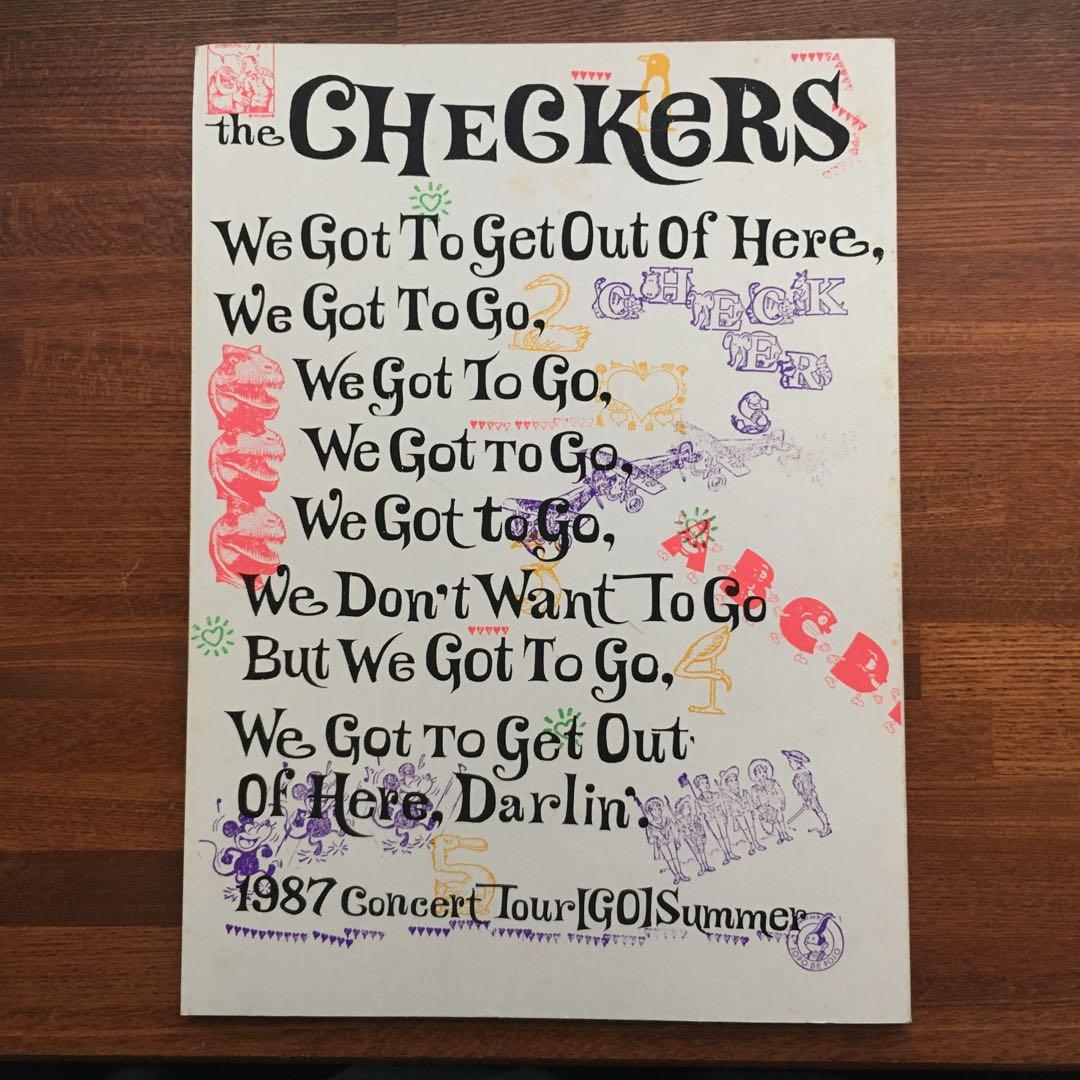 the CHECKeRS
We Got To Get Out Of Here,
We Got To Go,
2
CHECK
ERS
We Got To Go,
We Got To Go,
We Got to Go,
ABCD
3
We Don't Want To Go
But We Got To Go,
4
We Got To Get Out
Of Here, Darlin'.
5
1987 Concert Tour [GO] Summer
JOJO DE POJO